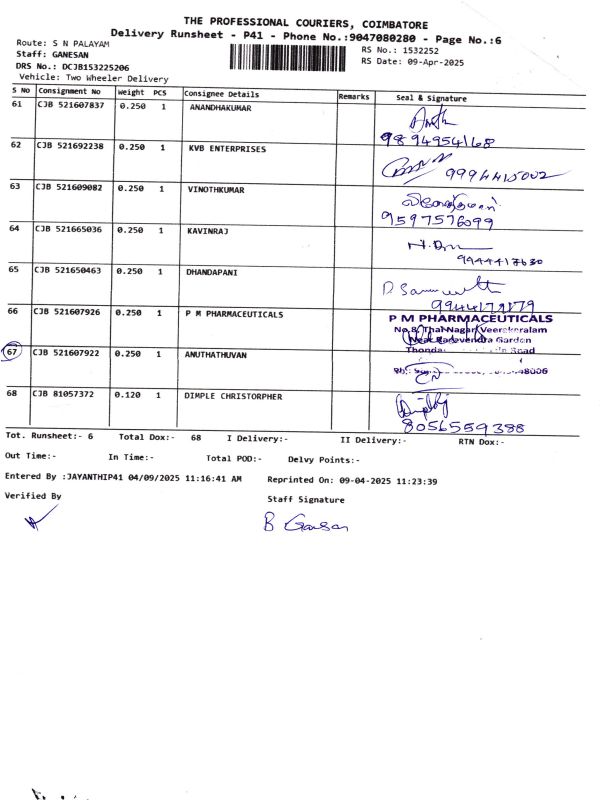 THE PROFESSIONAL COURIERS, COIMBATORE
Delivery Runsheet - P41 - Phone No.:9047080280 - Page No.:6
Route: S N PALAYAM
Staff: GANESAN
DRS No.: DCJB153225206
Vehicle: Two Wheeler Delivery
RS No.: 1532252
RS Date: 09-Apr-2025
S No Consignment No Weight PCS Consignee Details Remarks Seal & Signature
61 CJB 521607837 0.250 1 ANANDHAKUMAR
9894954168
62 CJB 521692238 0.250 1 KVB ENTERPRISES
9994415002
63 CJB 521609082 0.250 1 VINOTHKUMAR
9597576099
64 CJB 521665036 0.250 1 KAVINRAJ
65 CJB 521650463 0.250 1 DHANDAPANI
66 CJB 521607926 0.250 1 P M PHARMACEUTICALS
P M PHARMACEUTICALS
No.8, Thal Nagar, Veerakeralam
Near Ragavendra Garden
Road
67 CJB 521607922 0.250 1 ANUTHATHUVAN
68 CJB 81057372 0.120 1 DIMPLE CHRISTORPHER
8056559388
Tot. Runsheet:- 6 Total Dox:- 68 I Delivery:- II Delivery:- RTN Dox:-
Out Time:- In Time:- Total POD:- Delvy Points:-
Entered By :JAYANTHIP41 04/09/2025 11:16:41 AM Reprinted On: 09-04-2025 11:23:39
Verified By Staff Signature
B Ganesan